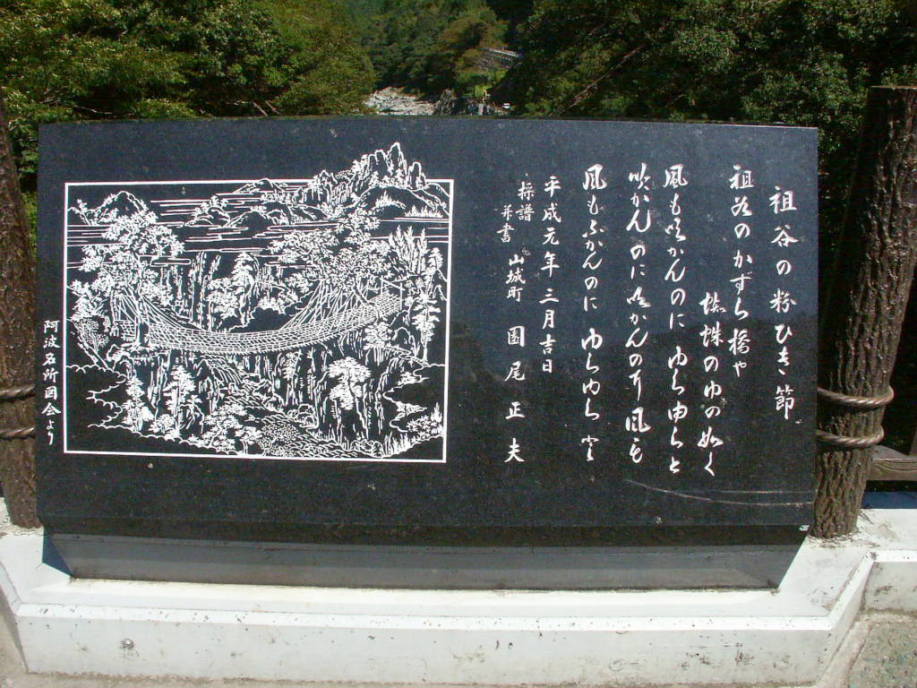 祖谷の粉ひき節
祖谷のかずら橋や
蜘蛛のゆの如く
風も吹かんのに ゆらゆらと
吹かんのに 吹かんのに 風も
風もふかんのに ゆらゆら
平成元年三月吉日
採譜
並書
山城町 園尾正夫
阿波名所図会より